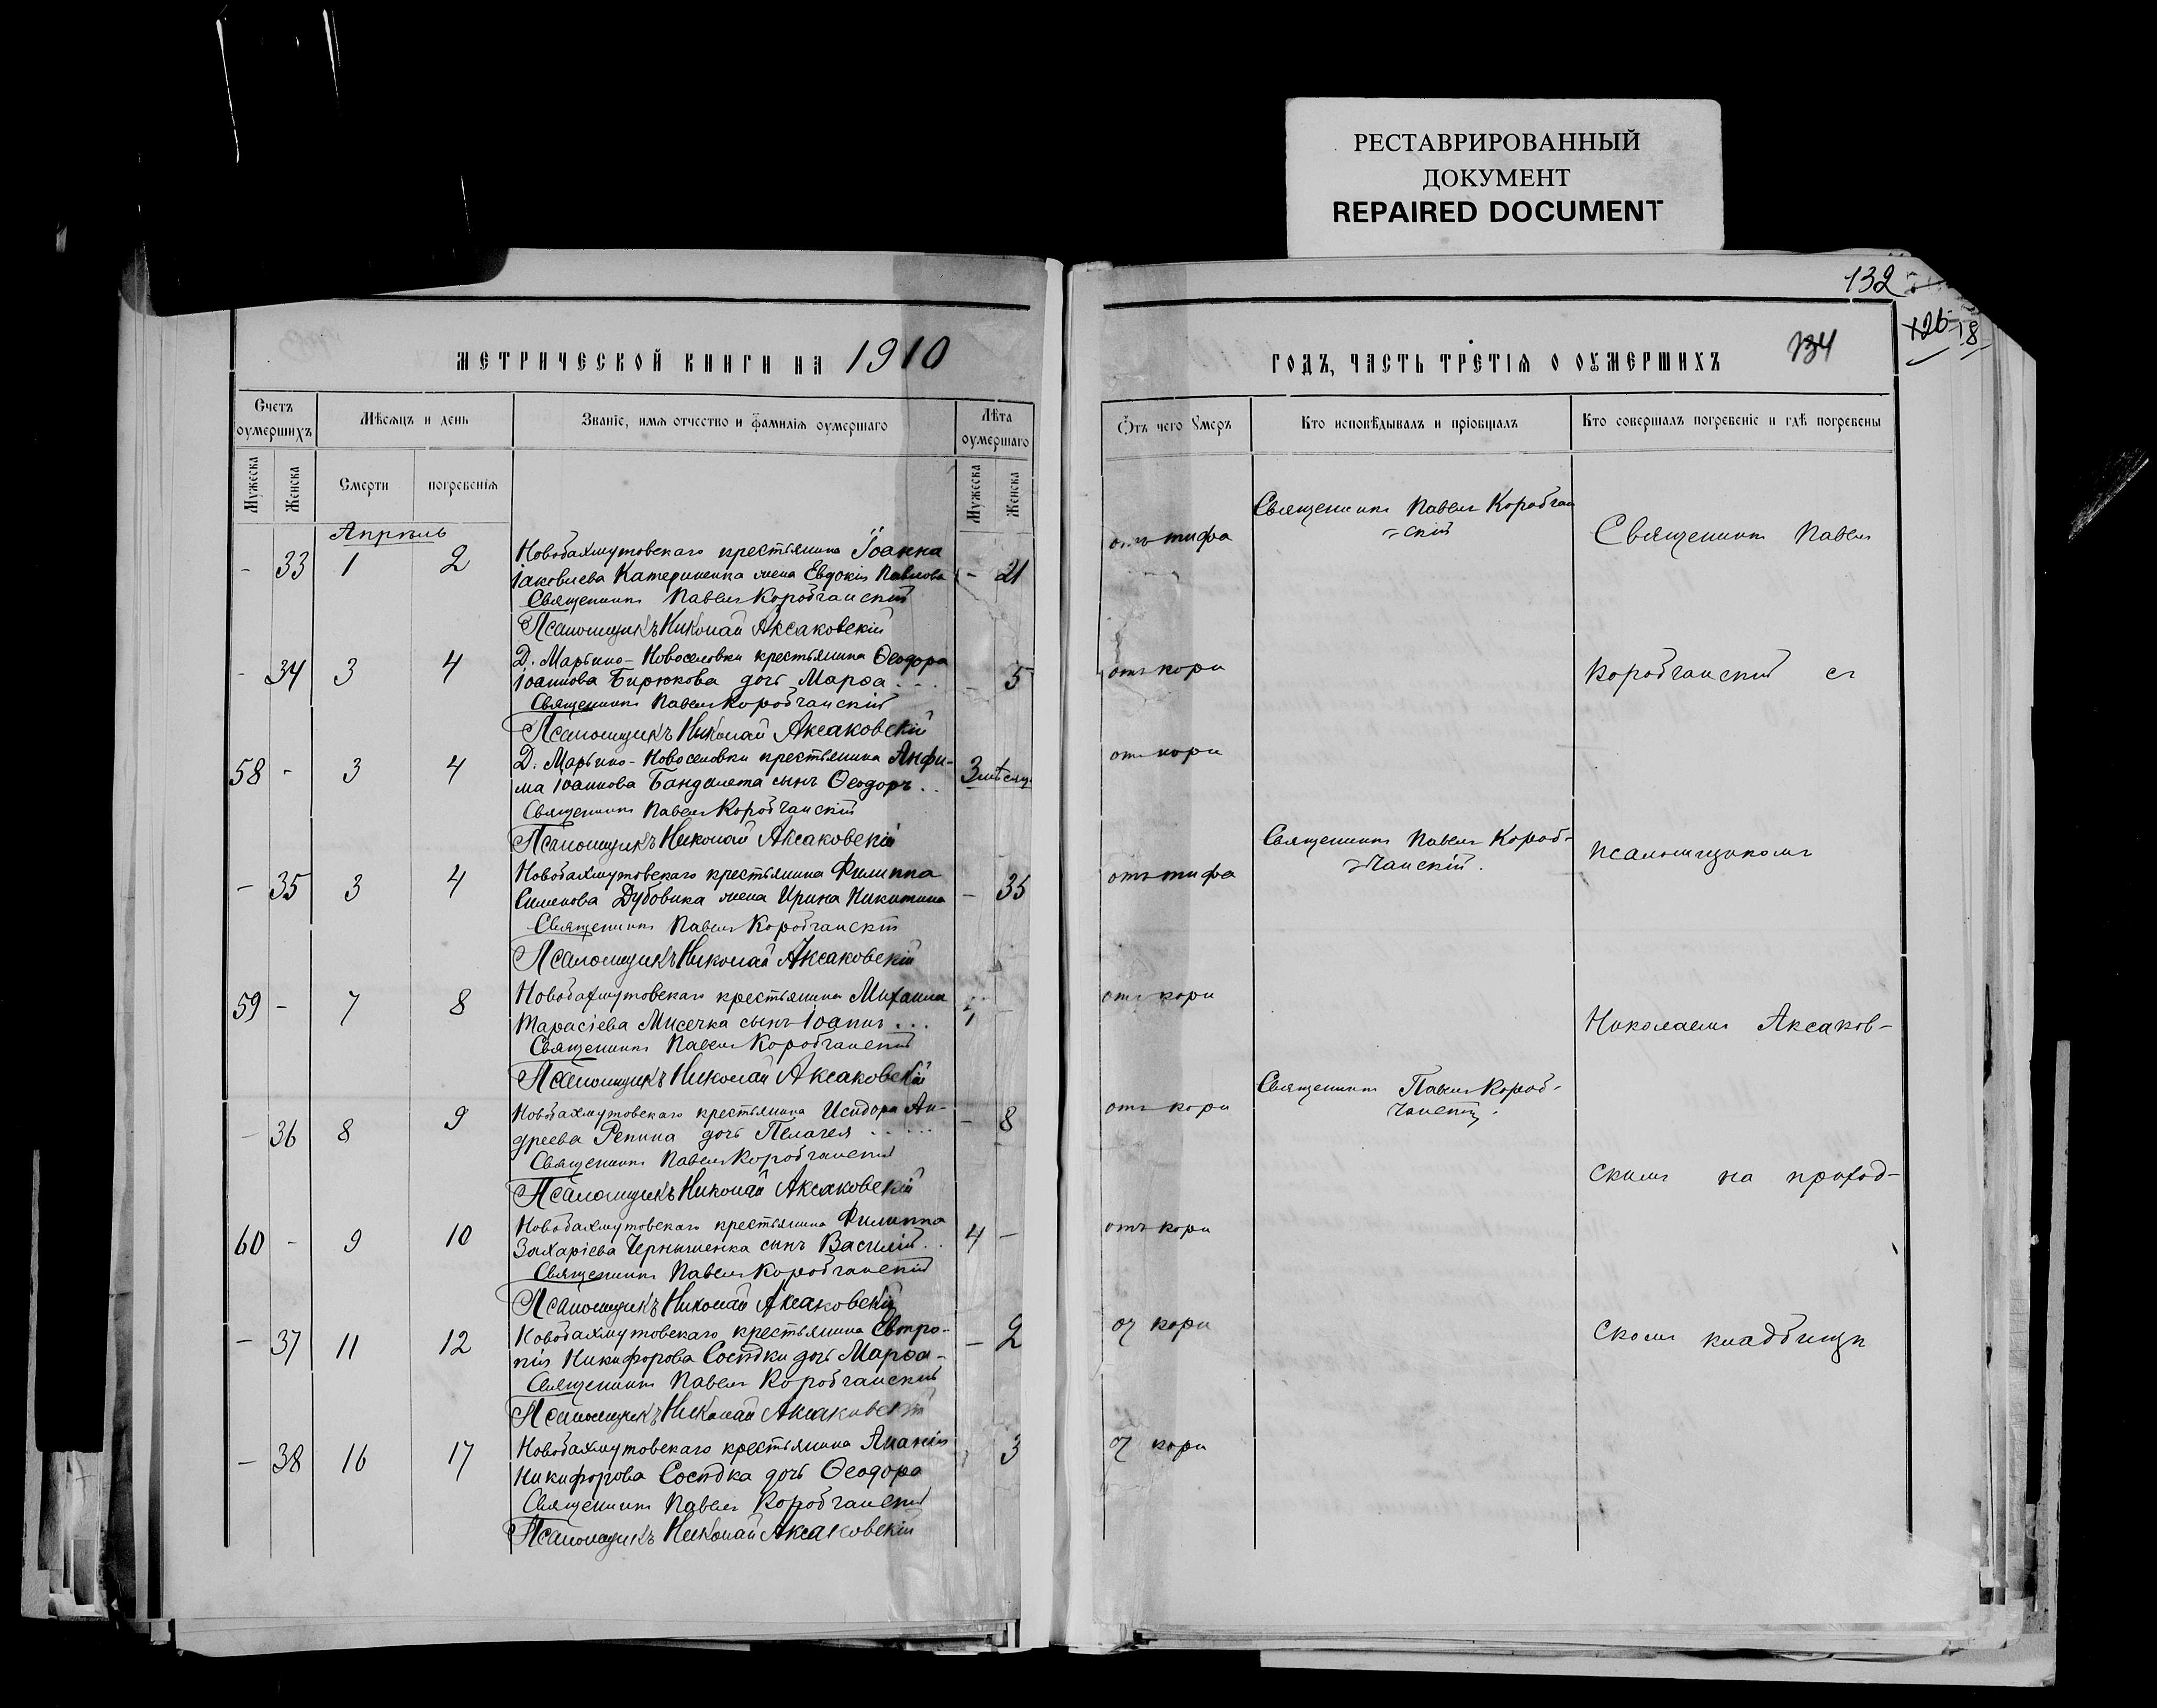 РЕСТАВРИРОВАННЫЙ
ДОКУМЕНТ
REPAIRED DOCUMENT
132
126
18
МЕТРИЧЕСКОЙ КНИГИ НА 1910
ГОДЪ, ЧАСТЬ ТРЕТІЯ О ОУМЕРШИХЪ
134
Счетъ оумершихъ
Мѣсяцъ и день
Званіе, имя отчество и фамилія оумершаго
Лѣта оумершаго
Отъ чего Умеръ
Кто исповѣдывалъ и пріобщалъ
Кто совершалъ погребеніе и гдѣ погребены
Мужеска
Женска
Смерти
погребенія
Мужеска
Женска
Апрѣль
- 33 1 2 Новобахмутовскаго крестьянина Іоанна
Іаковлева Катериненка жена Евдокія Павлова - 21
отъ тифа
Священникъ Павелъ Коробчан
=скій
Священникъ Павелъ
Священникъ Павелъ Коробчанскій
Псаломщикъ Николай Аксаковскій
- 34 3 4 Д. Марьино-Новоселовки крестьянина Ѳеодора
Іоаннова Бирюкова дочь Марѳа - 5
отъ кори
Коробчанскій съ
Священникъ Павелъ Коробчанскій
Псаломщикъ Николай Аксаковскій
58 - 3 4 Д. Марьино-Новоселовки крестьянина Анфи-
ма Іоаннова Бандалета сынъ Ѳеодоръ 3 мѣсяц
отъ кори
Священникъ Павелъ Коробчанскій
Псаломщикъ Николай Аксаковскій
- 35 3 4 Новобахмутовскаго крестьянина Филиппа
Симеонова Дубовика жена Ирина Никитина - 35
отъ тифа
Священникъ Павелъ Короб-
чанскій.
псаломщикомъ
Священникъ Павелъ Коробчанскій
Псаломщикъ Николай Аксаковскій
59 - 7 8 Новобахмутовскаго крестьянина Михаила
Тарасіева Мисечка сынъ Іоаннъ
отъ кори
Николаемъ Аксаков-
Священникъ Павелъ Коробчанскій
Псаломщикъ Николай Аксаковскій
- 36 8 9 Новобахмутовскаго крестьянина Исидора Ан-
дреева Репина дочь Пелагея - 8
отъ кори
Священникъ Павелъ Короб-
чанскій.
скимъ на приход-
Священникъ Павелъ Коробчанскій
Псаломщикъ Николай Аксаковскій
60 - 9 10 Новобахмутовскаго крестьянина Филиппа
Захаріева Чернышенка сынъ Василій 4 -
отъ кори
Священникъ Павелъ Коробчанскій
Псаломщикъ Николай Аксаковскій
- 37 11 12 Новобахмутовскаго крестьянина Евтро-
пія Никифорова Сосѣдки дочь Марѳа - 2
от кори
скомъ кладбищѣ
Священникъ Павелъ Коробчанскій
Псаломщикъ Николай Аксаковскій
- 38 16 17 Новобахмутовскаго крестьянина Ананія
Никифорова Сосѣдка дочь Ѳеодора 3
от кори
Священникъ Павелъ Коробчанскій
Псаломщикъ Николай Аксаковскій